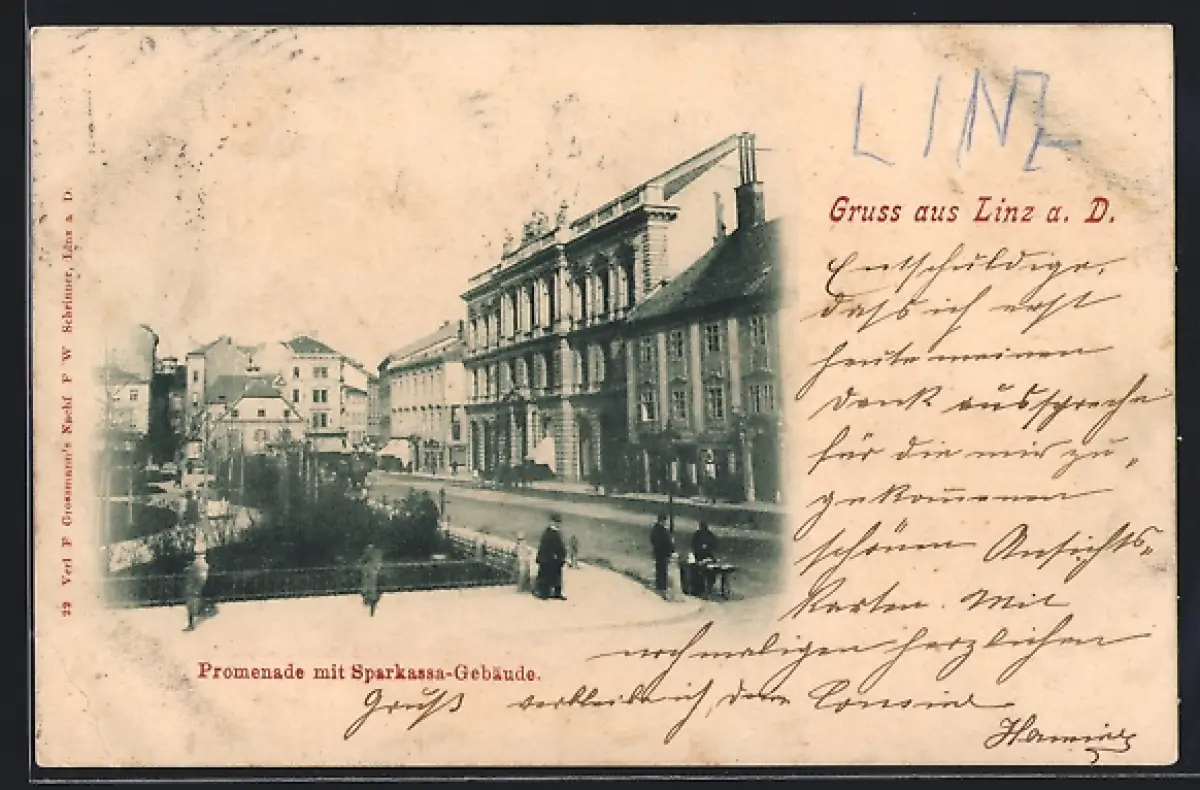 LINZ
Gruss aus Linz a. D.
Entschuldige,
daß ich erst
heute meinen
Dank ausspreche
für die mir zu„
gekom̄enen
schönen Ansichts„
Karten. Mit
nochmaligen herzlichen
Gruß verbleibe ich, dein
Promenade mit Sparkassa-Gebäude.
22 Verl F Grossmann's Nachf F W Schrinner, Linz a D.